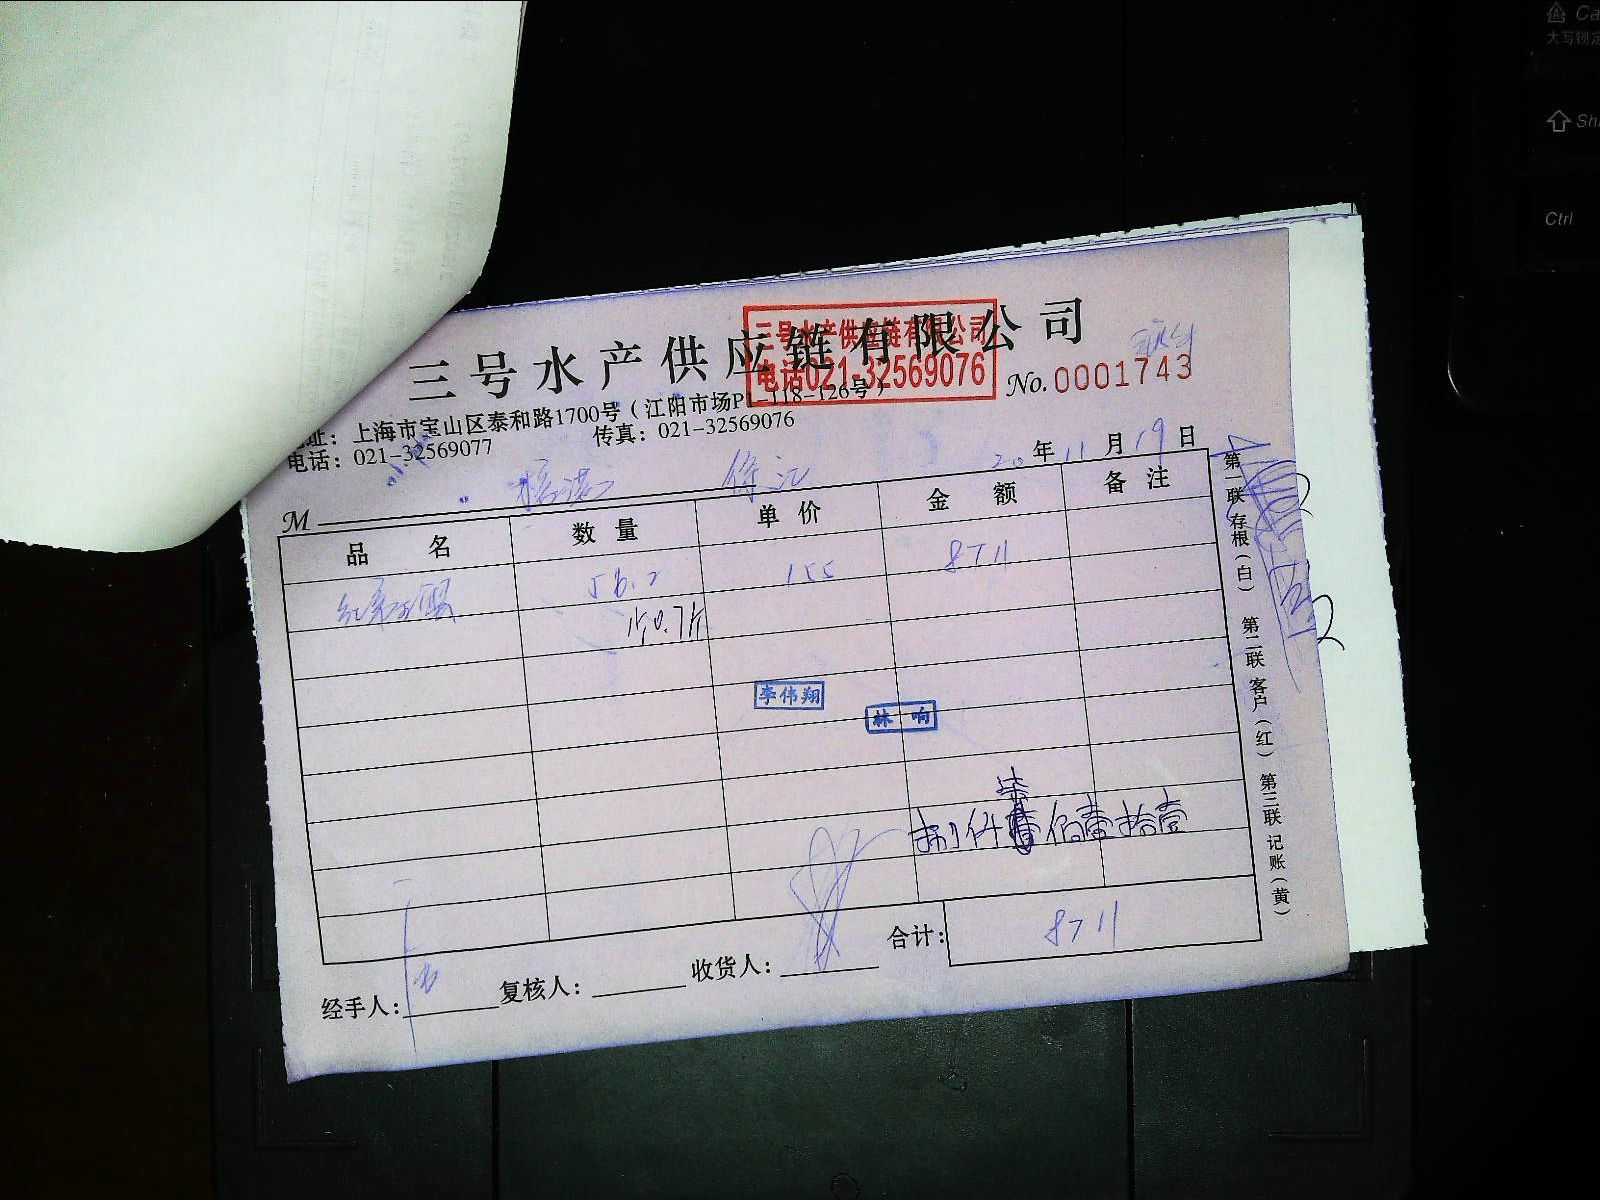 三号水产供应链有限公司
三号水产供应链有限公司
电话021-32569076
No.0001743
址：上海市宝山区泰和路1700号（江阳市场P1-118-126号）
电话：021-32569077 传真：021-32569076
20年11月19日
M
品名 数量 单价 金额 备注
56.2 155 8711
李伟翔
林响
捌仟柒佰壹拾壹
合计： 8711
经手人： 复核人： 收货人：
第一联 存根（白） 第二联 客户（红） 第三联 记账（黄）
大写锁定
Ctrl